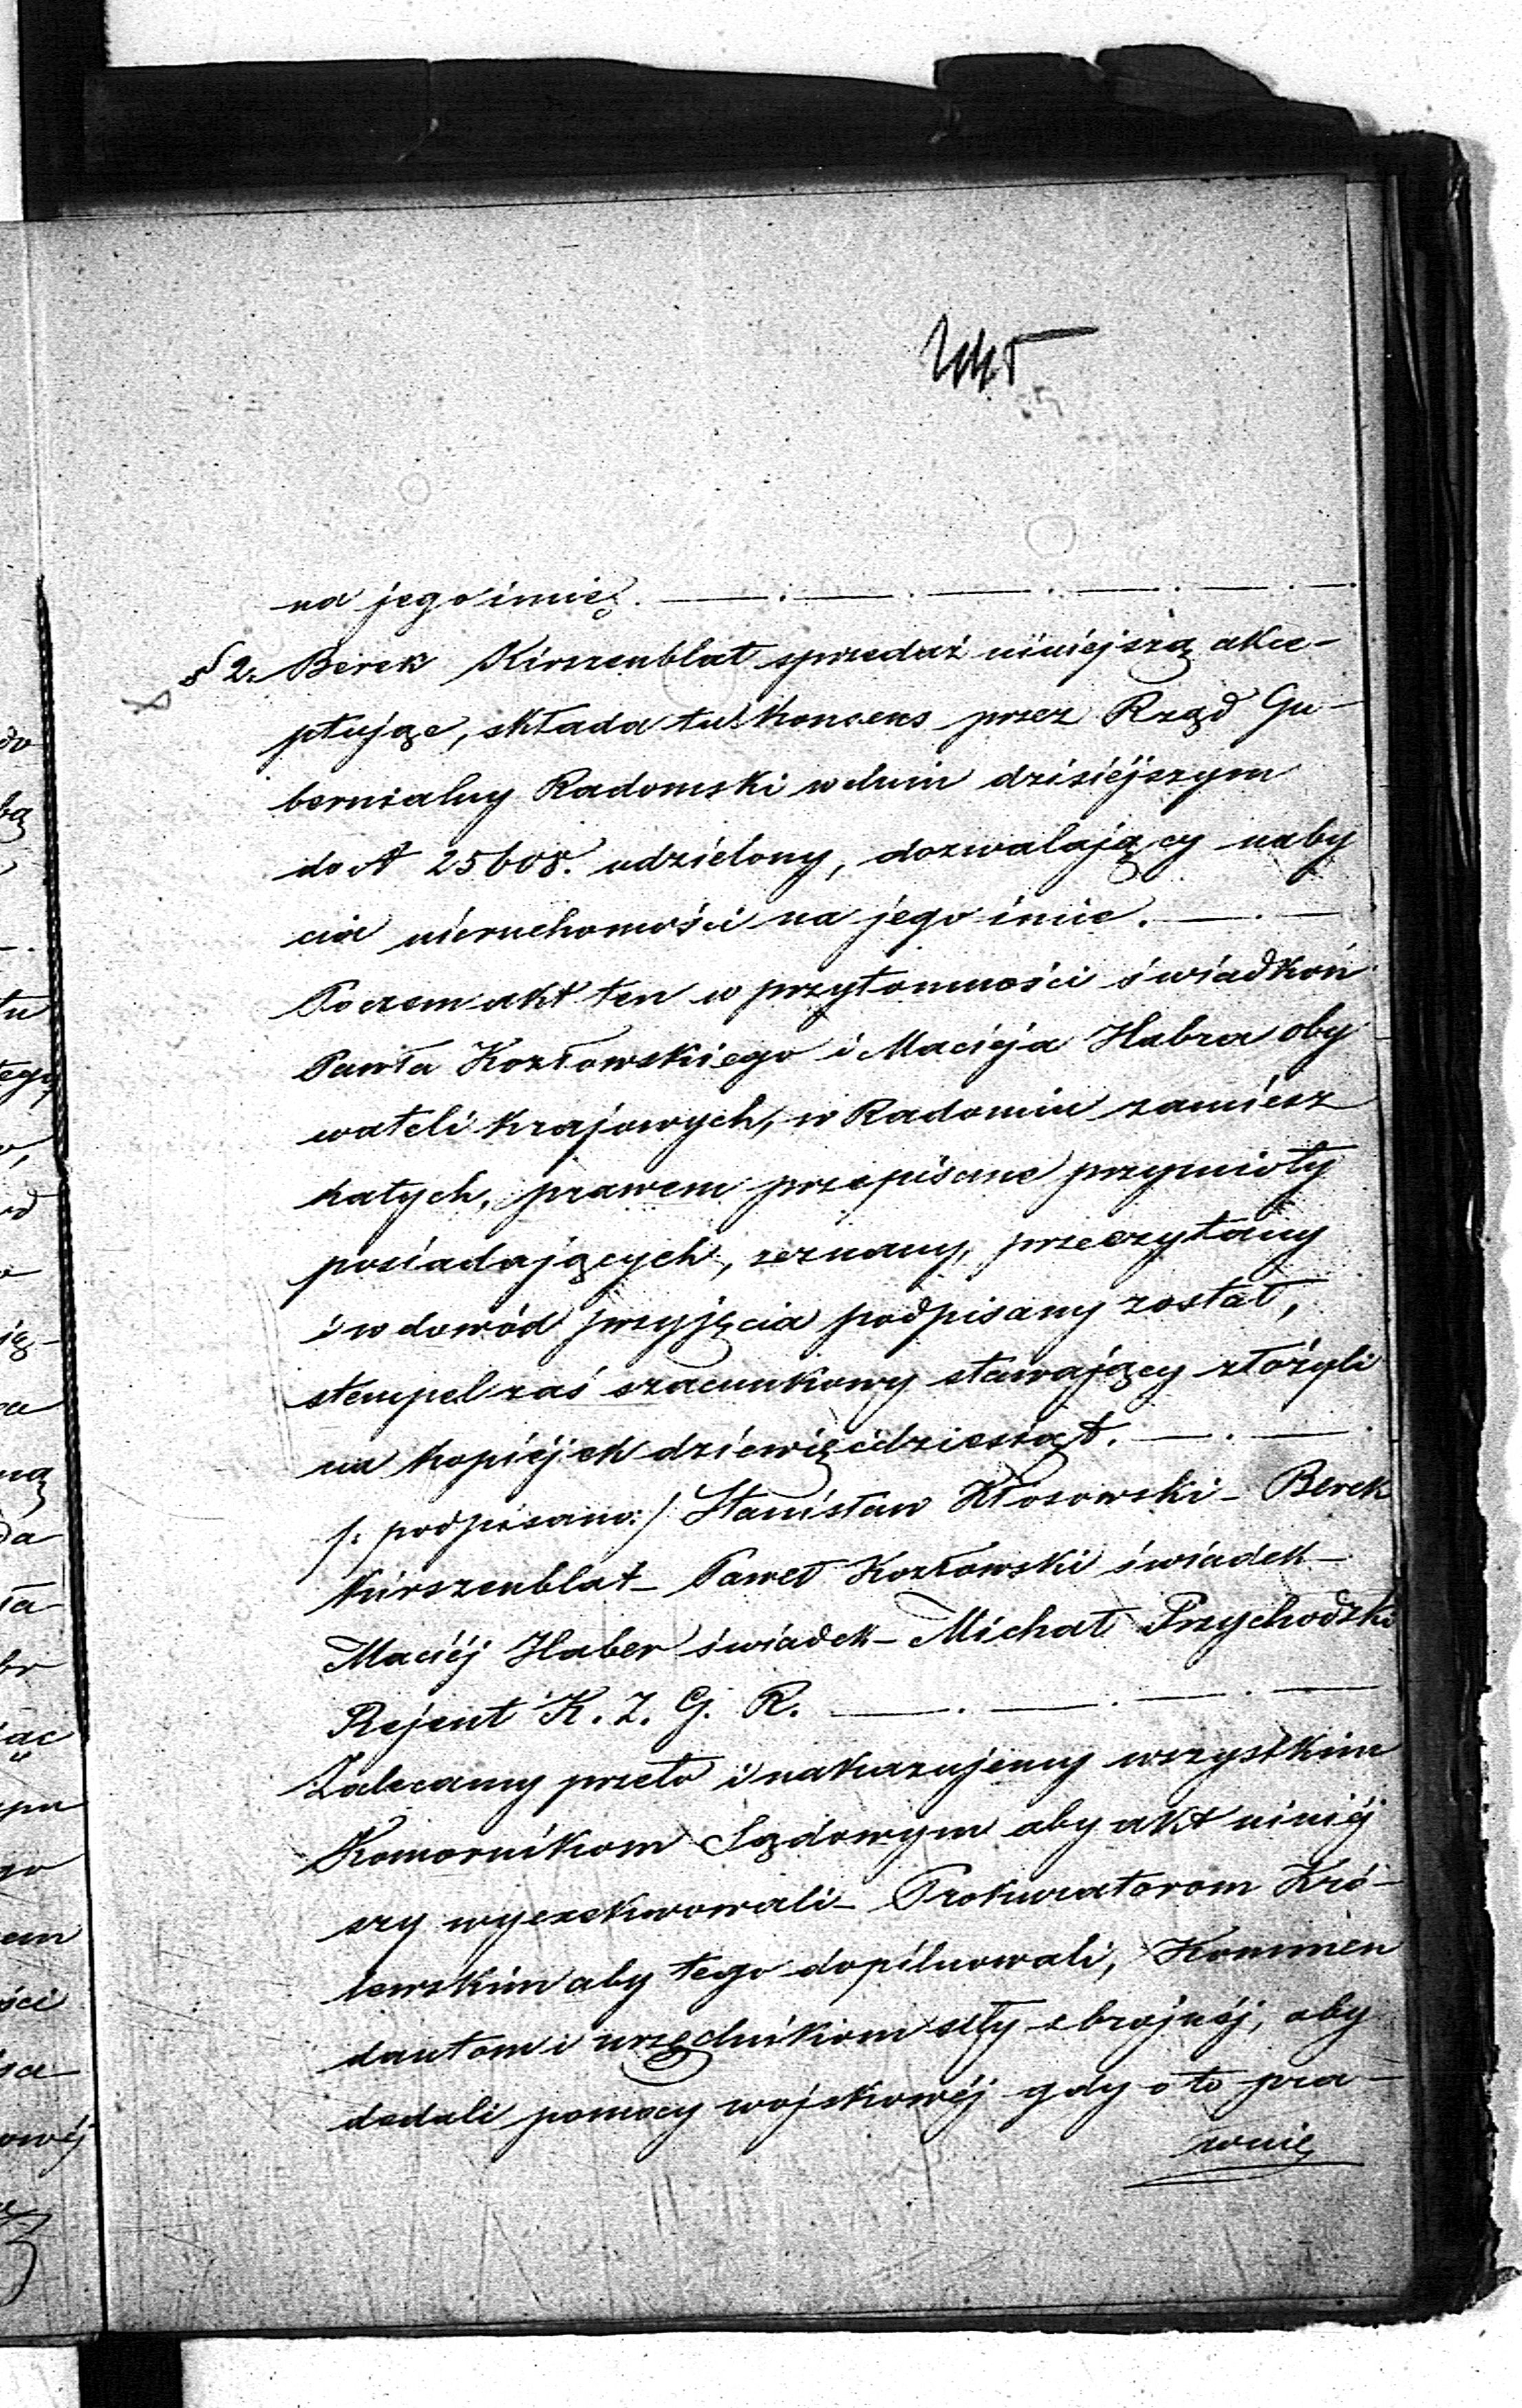 na jego imię.
§ 2. Berek Kirszenblat sprzedaż niniejszą akce-
ptując, składa tu konsens przez Rząd Gu-
bernialny Radomski w dniu dzisiéjszym
do N 25608. udzielony, dozwalający naby
cia nieruchomości na jego imie.
Poczem akt ten w przytomności świadków
Pawła Kozłowskiego i Macieja Habra oby
wateli krajowych, w Radomiu zamiesz
kałych, prawem przepisane przymioty
posiadających, zeznany, przeczytany
i w dowód przyjęcia podpisany został,
stempel zaś szacunkowy stawający złożyli
na kopiéjek dziewięćdziesiąt.
/: podpisano:/ Stanisław Kłosowski – Berek
Kirszenblat – Paweł Kozłowski świadek –
Maciéj Haber świadek – Michał Przychodzki
Rejent K. Z. G. R.
Zalecamy przeto i nakazujemy wszystkim
Komornikom Sądowym aby akt niniéj
szy wyexekwowali – Prokuratorom Kró-
lewskim aby tego dopilnowali, Kommen
dantom i urzędnikom siły zbrojnéj, aby
dodali pomocy wojskowéj gdy o to pra-
wnie